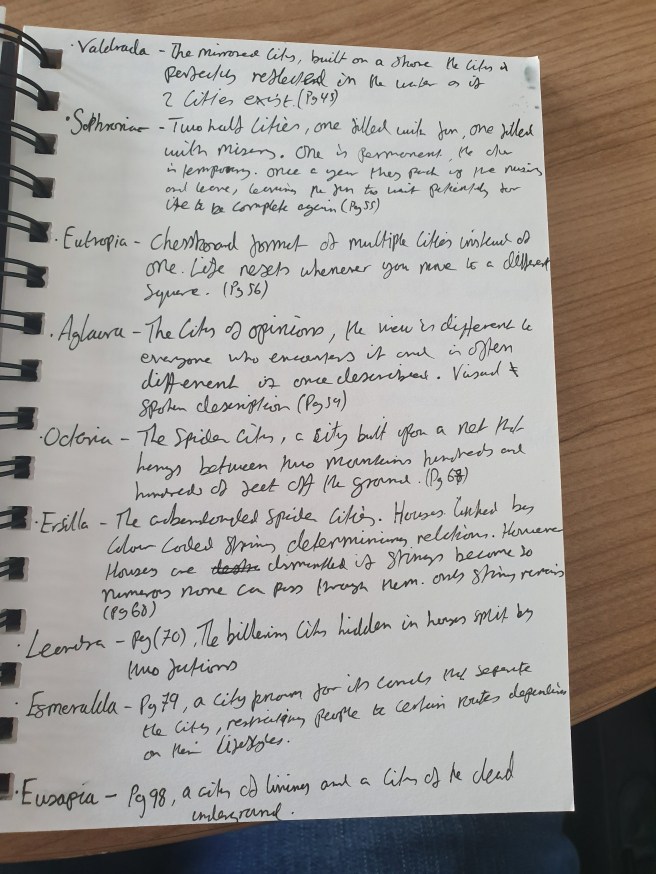 · Valdrada – The mirrored City, built on a shore the City is
perfectly reflected in the water as if
2 Cities exist. (Pg 45)
· Sophronia – Two half Cities, one filled with fun, one filled
with misery. One is permanent, the other
is temporary. Once a year they pack up the misery
and leave, leaving the fun to wait patiently for
life to be complete again (Pg 55)
· Eutropia – Chessboard format of multiple Cities instead of
one. Life resets whenever you move to a different
Square. (Pg 56)
· Aglaura – The City of opinions, the view is different to
everyone who encounters it and is often
different if once described. Visual ≠
spoken description (Pg 59)
· Octavia – The Spider City, a city built upon a net that
hangs between two mountains hundreds and
hundreds of feet off the ground. (Pg 67)
· Ersilla – The abandonded spider Cities. Houses linked by
Colour coded strings determining relations. However
Houses are dismantled if strings become so
numerous none can pass through them. only string remains
(Pg 68)
· Leandra – Pg (70), The City hidden in houses split by
two factions
· Esmeralda – Pg 79, a city known for its canals that separate
the City, restricting people to certain routes depending
on their lifestyles.
· Eusapia – Pg 98, a city of living and a City of the dead
underground.